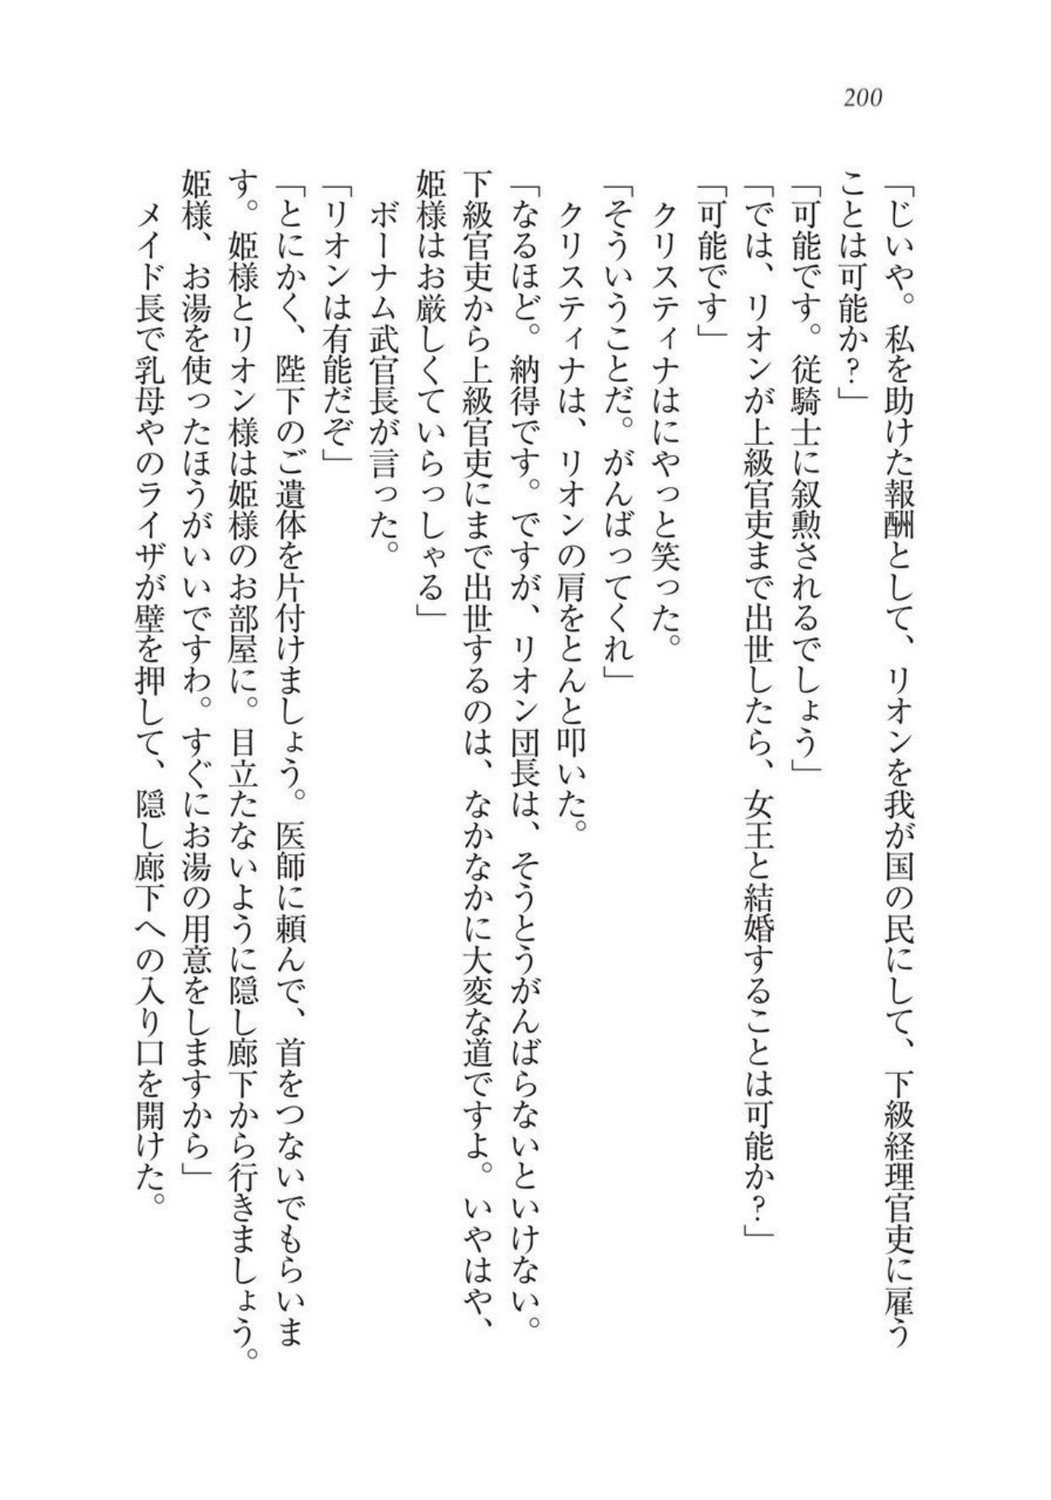 200
「じいや。私を助けた報酬として、リオンを我が国の民にして、下級経理官吏に雇う
ことは可能か?」
「可能です。従騎士に叙勲されるでしょう」
「では、リオンが上級官吏まで出世したら、女王と結婚することは可能か?」
「可能です」
クリスティナはにやっと笑った。
「そういうことだ。がんばってくれ」
クリスティナは、リオンの肩をとんと叩いた。
「なるほど。納得です。ですが、リオン団長は、そうとうがんばらないといけない。
下級官吏から上級官吏にまで出世するのは、なかなかに大変な道ですよ。いやはや、
姫様はお厳しくていらっしゃる」
ボーナム武官長が言った。
「リオンは有能だぞ」
「とにかく、陛下のご遺体を片付けましょう。医師に頼んで、首をつないでもらいま
す。姫様とリオン様は姫様のお部屋に。目立たないように隠し廊下から行きましょう。
姫様、お湯を使ったほうがいいですわ。すぐにお湯の用意をしますから」
メイド長で乳母やのライザが壁を押して、隠し廊下への入り口を開けた。